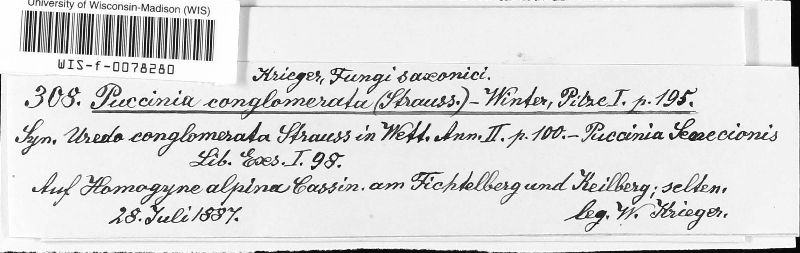 University of Wisconsin-Madison (WIS)
WIS-f-0078280
Krieger, Fungi saxonici.
308. Puccinia conglomerata (Strauss.) – Winter, Pilze I. p. 195.
Syn. Uredo conglomerata Strauss in Wett. Ann. II. p. 100. – Puccinia Senecionis
Lib. Exs. I. 98.
Auf Homogyne alpina Cassin. am Fichtelberg und Keilberg; selten.
28. Juli 1887.
leg. W. Krieger.